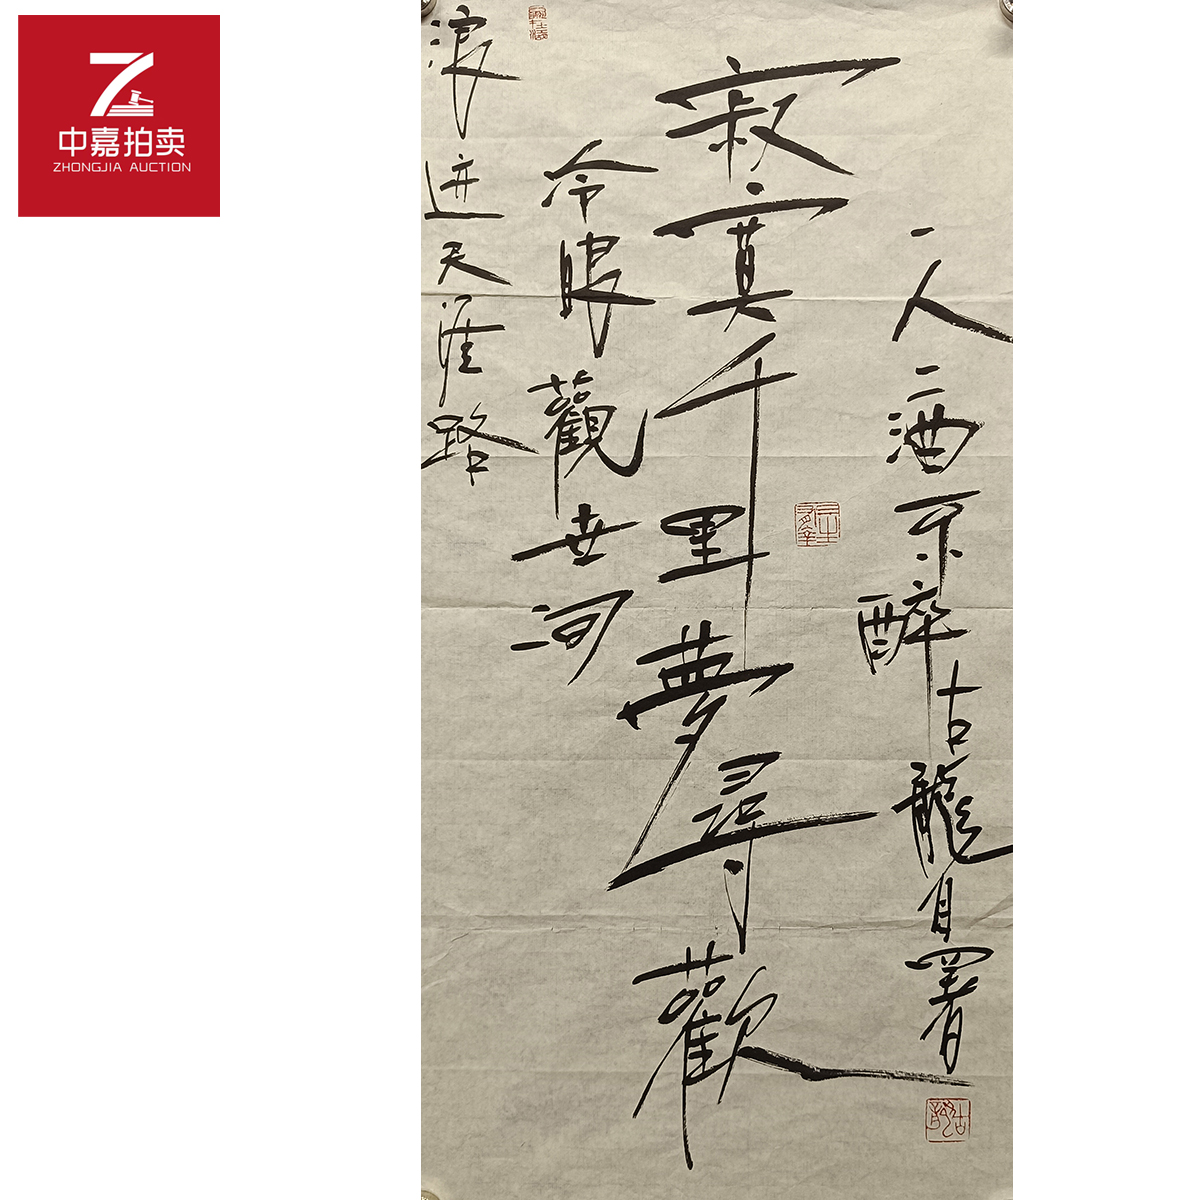 中嘉拍卖
ZHONGJIA AUCTION
浪迹天涯路
冷眼觀世
寂寞千里夢尋歡
一人一酒不醉古龍自署
古龍